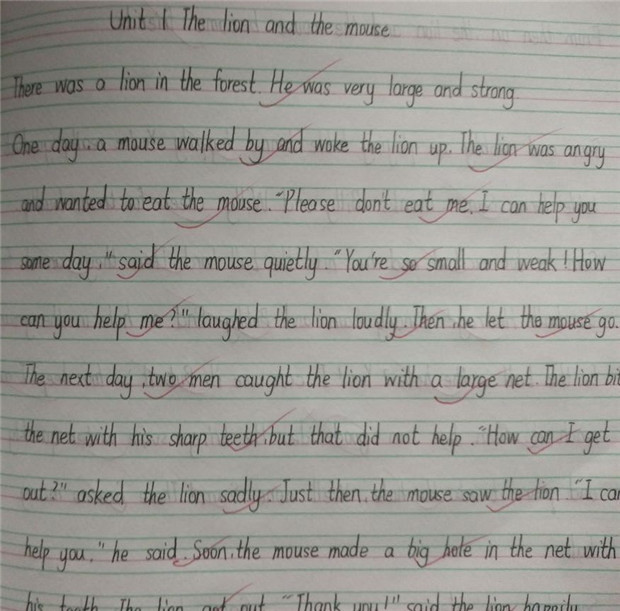 Unit 1 The lion and the mouse
There was a lion in the forest. He was very large and strong
One day, a mouse walked by and woke the lion up. The lion was angry
and wanted to eat the mouse. "Please don't eat me. I can help you
some day," said the mouse quietly. "You're so small and weak! How
can you help me?" laughed the lion loudly. Then, he let the mouse go.
The next day, two men caught the lion with a large net. The lion bit
the net with his sharp teeth, but that did not help. "How can I get
out?" asked the lion sadly. Just then, the mouse saw the lion. "I can
help you," he said. Soon, the mouse made a big hole in the net with
his teeth. The lion got out. "Thank you!" said the lion happily